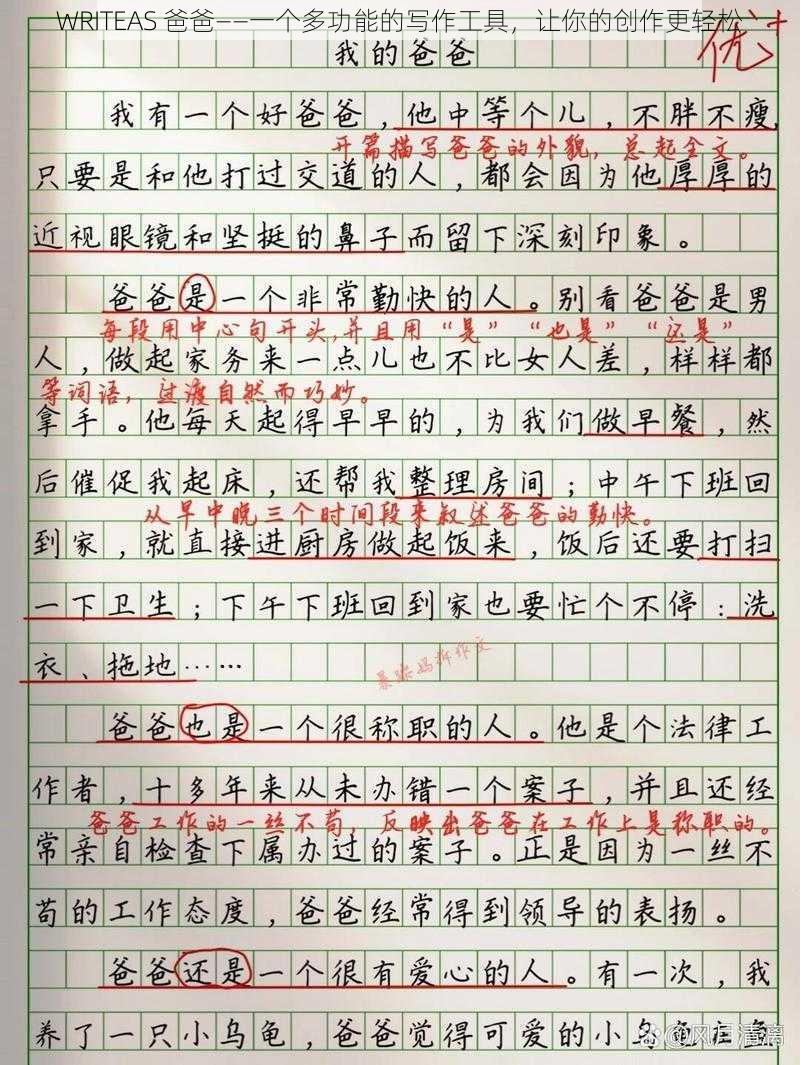 WRITEAS 爸爸——一个多功能的写作工具，让你的创作更轻松
优+
我的爸爸
我有一个好爸爸，他中等个儿，不胖不瘦，
开篇描写爸爸的外貌，总起全文。
只要是和他打过交道的人，都会因为他厚厚的
近视眼镜和坚挺的鼻子而留下深刻印象。
爸爸是一个非常勤快的人。别看爸爸是男
每段用中心句开头，并且用“是”“也是”“还是”
人，做起家务来一点儿也不比女人差，样样都
等词语，过渡自然而巧妙。
拿手。他每天起得早早的，为我们做早餐，然
后催促我起床，还帮我整理房间；中午下班回
从早中晚三个时间段来叙述爸爸的勤快。
到家，就直接进厨房做起饭来，饭后还要打扫
一下卫生；下午下班回到家也要忙个不停：洗
衣、拖地……
暴躁妈拆作文
爸爸也是一个很称职的人。他是个法律工
作者，十多年来从未办错一个案子，并且还经
爸爸工作的一丝不苟，反映出爸爸在工作上是称职的。
常亲自检查下属办过的案子。正是因为一丝不
苟的工作态度，爸爸经常得到领导的表扬。
爸爸还是一个很有爱心的人。有一次，我
养了一只小乌龟，爸爸觉得可爱的小乌龟在鱼
@风月清漓